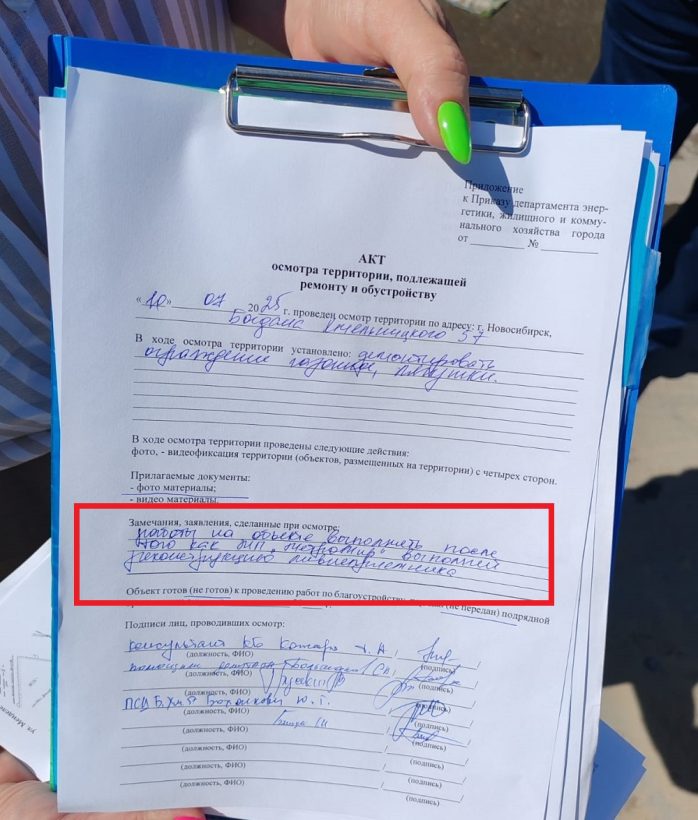 Приложение
к Приказу департамента энер-
гетики, жилищного и комму-
нального хозяйства города
от __________ № __________
АКТ
осмотра территории, подлежащей
ремонту и обустройству
«10» 07 2025 г. проведен осмотр территории по адресу: г. Новосибирск,
Богдана Хмельницкого 57
В ходе осмотра территории установлено: демонтировать
ограждение газонов,
В ходе осмотра территории проведены следующие действия:
фото, - видеофиксация территории (объектов, размещенных на территории) с четырех сторон.
Прилагаемые документы:
- фото материалы;
- видео материалы.
Замечания, заявления, сделанные при осмотре:
работы на объекте выполнить после
того как МП "Метромир" выполнит
реконструкцию ливнеприемника
Объект готов (не готов) к проведению работ по благоустройству, (не передан) подрядной
Подписи лиц, проводивших осмотр:
консультант
(должность, ФИО) (подпись)
помощник
(должность, ФИО) (подпись)
(должность, ФИО) (подпись)
ПСД Б.Хм. Ю. Г.
(должность, ФИО) (подпись)
(должность, ФИО) (подпись)
(должность, ФИО) (подпись)
(должность, ФИО) (подпись)